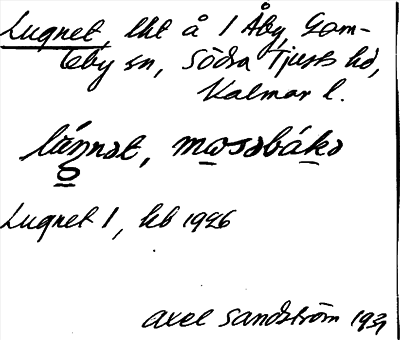 Lugnet, lht å 1 Åby, Gam-
leby sn, Södra Tjusts hd,
Kalmar l.
Lugnet 1, kb 1926
Axel Sandström 1931